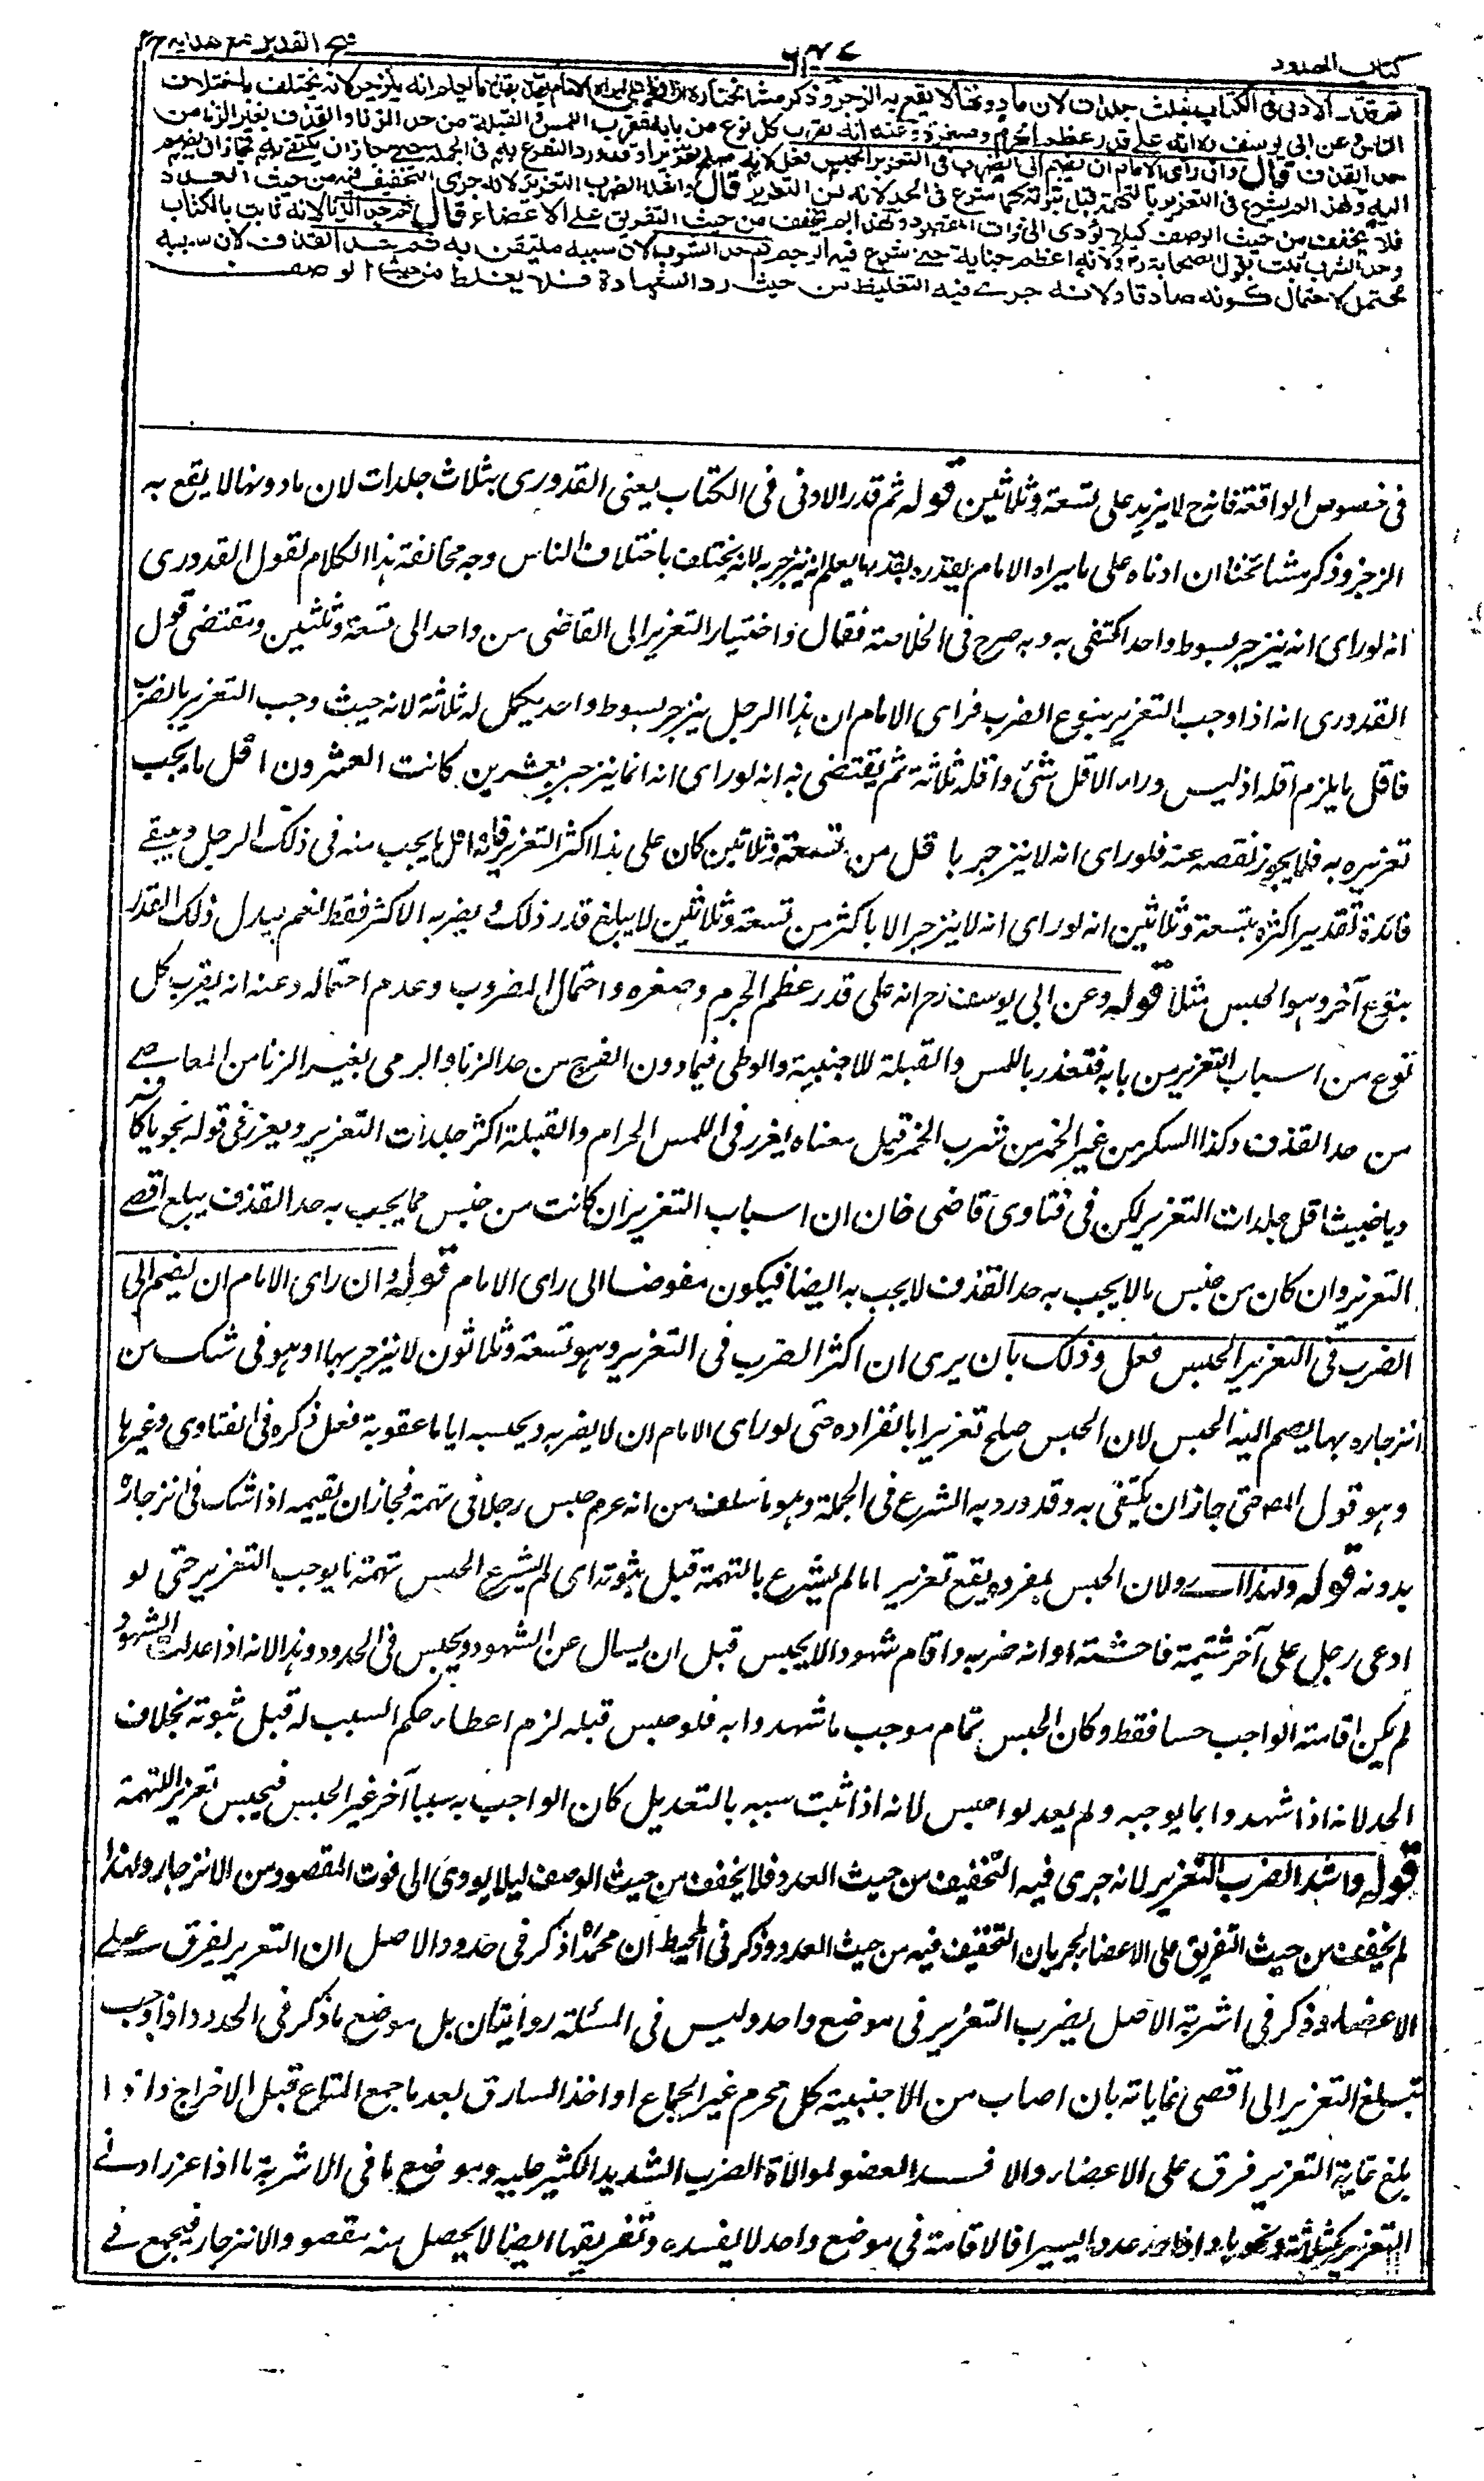 كتاب الحدود
فتح القدير مع هدايه ج ٢
ثم قدر الادنى فى الكتاب بثلث جلدات لان ما دونها لا يقع به الزجر وذكر مشائخنا ره ان ادناه على ما يراه الامام يقدر بقدر ما يعلم انه ينزجر لانه يختلف باختلاف
الناس وعن ابى يوسف ره انه على قدر عظم الجرم وصغره وعنه انه يقرب كل نوع من بابه فيقرب اللمس والقبلة من حد الزنا والقذف بغير الزنا من
حد القذف قال وان رأى الامام ان يضم الى الضرب فى التعزير الحبس فعل لانه صلح تعزيرا وقد ورد الشرع به فى الجملة حتى جاز ان يكتفى به فجاز ان يضم
اليه ولهذا لم يشرع فى التعزير بالتهمة قبل ثبوته كما شرع فى الحد لانه من التعزير قال واشد الضرب التعزير لانه جرى التخفيف فيه من حيث العدد
فلا يخفف من حيث الوصف كيلا يؤدى الى فوات المقصود ولهذا لم يخفف من حيث التفريق على الاعضاء قال ثم حد الزنا لانه ثابت بالكتاب
وحد الشرب ثبت بقول الصحابة رض ولانه اعظم جناية حتى شرع فيه الرجم ثم حد الشرب لان سببه متيقن به ثم حد القذف لان سببه
محتمل لاحتمال كونه صادقا ولانه جرى فيه التغليظ من حيث رد الشهادة فلا يغلظ من حيث الوصف
فى خصوص الواقعة فانه ح لا يزيد على تسعة وثلاثين قوله ثم قدر الادنى فى الكتاب يعنى القدورى بثلاث جلدات لان ما دونها لا يقع به
الزجر وذكر مشائخنا ان ادناه على ما يراه الامام يقدره بقدر ما يعلم انه ينزجر به لانه يختلف باختلاف الناس وجه مخالفة هذا الكلام لقول القدورى
انه لو راى انه ينزجر بسوط واحد اكتفى به وبه صرح فى الخلاصة فقال واختيار التعزير الى القاضى من واحد الى تسعة وثلثين ومقتضى قول
القدورى انه اذا وجب التعزير بنوع الضرب فراى الامام ان هذا الرجل ينزجر بسوط واحد يكمل له ثلاثة لانه حيث وجب التعزير بالضرب
فاقل ما يلزم اقله اذ ليس وراء الاقل شئ واقله ثلاثة ثم يقتضى انه لو راى انه انما ينزجر بعشرين كانت العشرون اقل ما يجب
تعزيره به فلا يجوز نقصه عنه فلو راى انه لا ينزجر باقل من تسعة وثلاثين كان على هذا اكثر التعزير فانه اقل ما يجب منه فى ذلك الرجل ويبقے
فائدة تقدير اكثره بتسعة وثلاثين انه لو راى انه لا ينزجر الا باكثر من تسعة وثلاثين لا يبلغ قدر ذلك ويضربه الاكثر فقط نعم يبدل ذلك القدر
بنوع آخر وهو الحبس مثلا قوله وعن ابى يوسف رح انه على قدر عظم الجرم وصغره واحتمال المضروب وعدم احتماله وعنه انه يقرب كل
نوع من اسباب التعزير من بابه فيقدر باللمس والقبلة للاجنبية والوطى فيما دون الفرج من حد الزنا والرمى بغير الزنا من المعاصے
من حد القذف وكذا السكر من غير الخمر من شرب الخمر قيل معناه يعزر فى اللمس الحرام والقبلة اكثر جلدات التعزير ويعزر فى قوله نحو يا كافر
ويا خبيث اقل جلدات التعزير لكن فى فتاوى قاضى خان ان اسباب التعزير ان كانت من جنس مما يجب به حد القذف يبلغ اقصے
التعزير وان كان من جنس ما لا يجب به حد القذف لا يجب به ايضا فيكون مفوضا الى راى الامام قوله وان راى الامام ان يضم الى
الضرب فى التعزير الحبس فعل وذلك بان يرى ان اكثر الضرب فى التعزير وهو تسعة وثلاثون لا ينزجر بها او هو فى شك من
انزجاره بها يضم اليه الحبس لان الحبس صلح تعزيرا بانفراده حتى لو راى الامام ان لا يضربه ويحبسه اياما عقوبة فعل ذكره فى الفتاوى وغيرها
وهو قول المص حتى جاز ان يكتفى به وقد ورد به الشرع فى الجملة وهو ما سلف من انه عم حبس رجلا فى تهمة فجاز ان يقيمه اذا شك فى انزجاره
بدونه قوله ولهذا اے ولان الحبس بمفرده يقع تعزيرا ما لم يشرع بالتهمة قبل ثبوته اى لم يشرع الحبس بتهمة ما يوجب التعزير حتى لو
ادعى رجل على آخر شتيمة فاحشة او انه ضربه واقام شهودا لا يحبس قبل ان يسال عن الشهود ويحبس فى الحدود وهذا لانه اذا عدلت الشهود
لم يكن اقامة الواجب حسا فقط وكان الحبس تمام موجب ما شهدوا به فلو حبس قبله لزم اعطاء حكم السبب له قبل ثبوته بخلاف
الحد لانه اذا شهدوا بما يوجبه ولم يعدلوا حبس لانه اذا ثبت سببه بالتعديل كان الواجب به سببا آخر غير الحبس فيحبس تعزيرا للتهمة
قوله واشد الضرب التعزير لانه جرى فيه التخفيف من حيث العدد فلا يخفف من حيث الوصف ليلا يودى الى فوت المقصود من الانزجار ولهذا
لم يخفف من حيث التفريق على الاعضاء لجريان التخفيف فيه من حيث العدد وذكر فى المحيط ان محمدا رح ذكر فى حدود الاصل ان التعزير يفرق على
الاعضاء وذكر فى اشربة الاصل يضرب التعزير فى موضع واحد وليس فى المسئلة روايتان بل موضع ما ذكر فى الحدود اذا وجب
تبليغ التعزير الى اقصى غاياته بان اصاب من الاجنبية كل محرم غير الجماع او اخذ السارق بعد ما جمع المتاع قبل الاخراج واذا
بلغ غاية التعزير فرق على الاعضاء والا فسد العضو لموالاة الضرب الشديد الكثير عليه وموضع ما فى الاشربة ما اذا عزر ادنے
التعزير كثلاثة ونحوها واذا حد عددا يسيرا فالاقامة فى موضع واحد لا يفسده وتفريقها ايضا لا يحصل منه مقصود الانزجار فيجمع فے